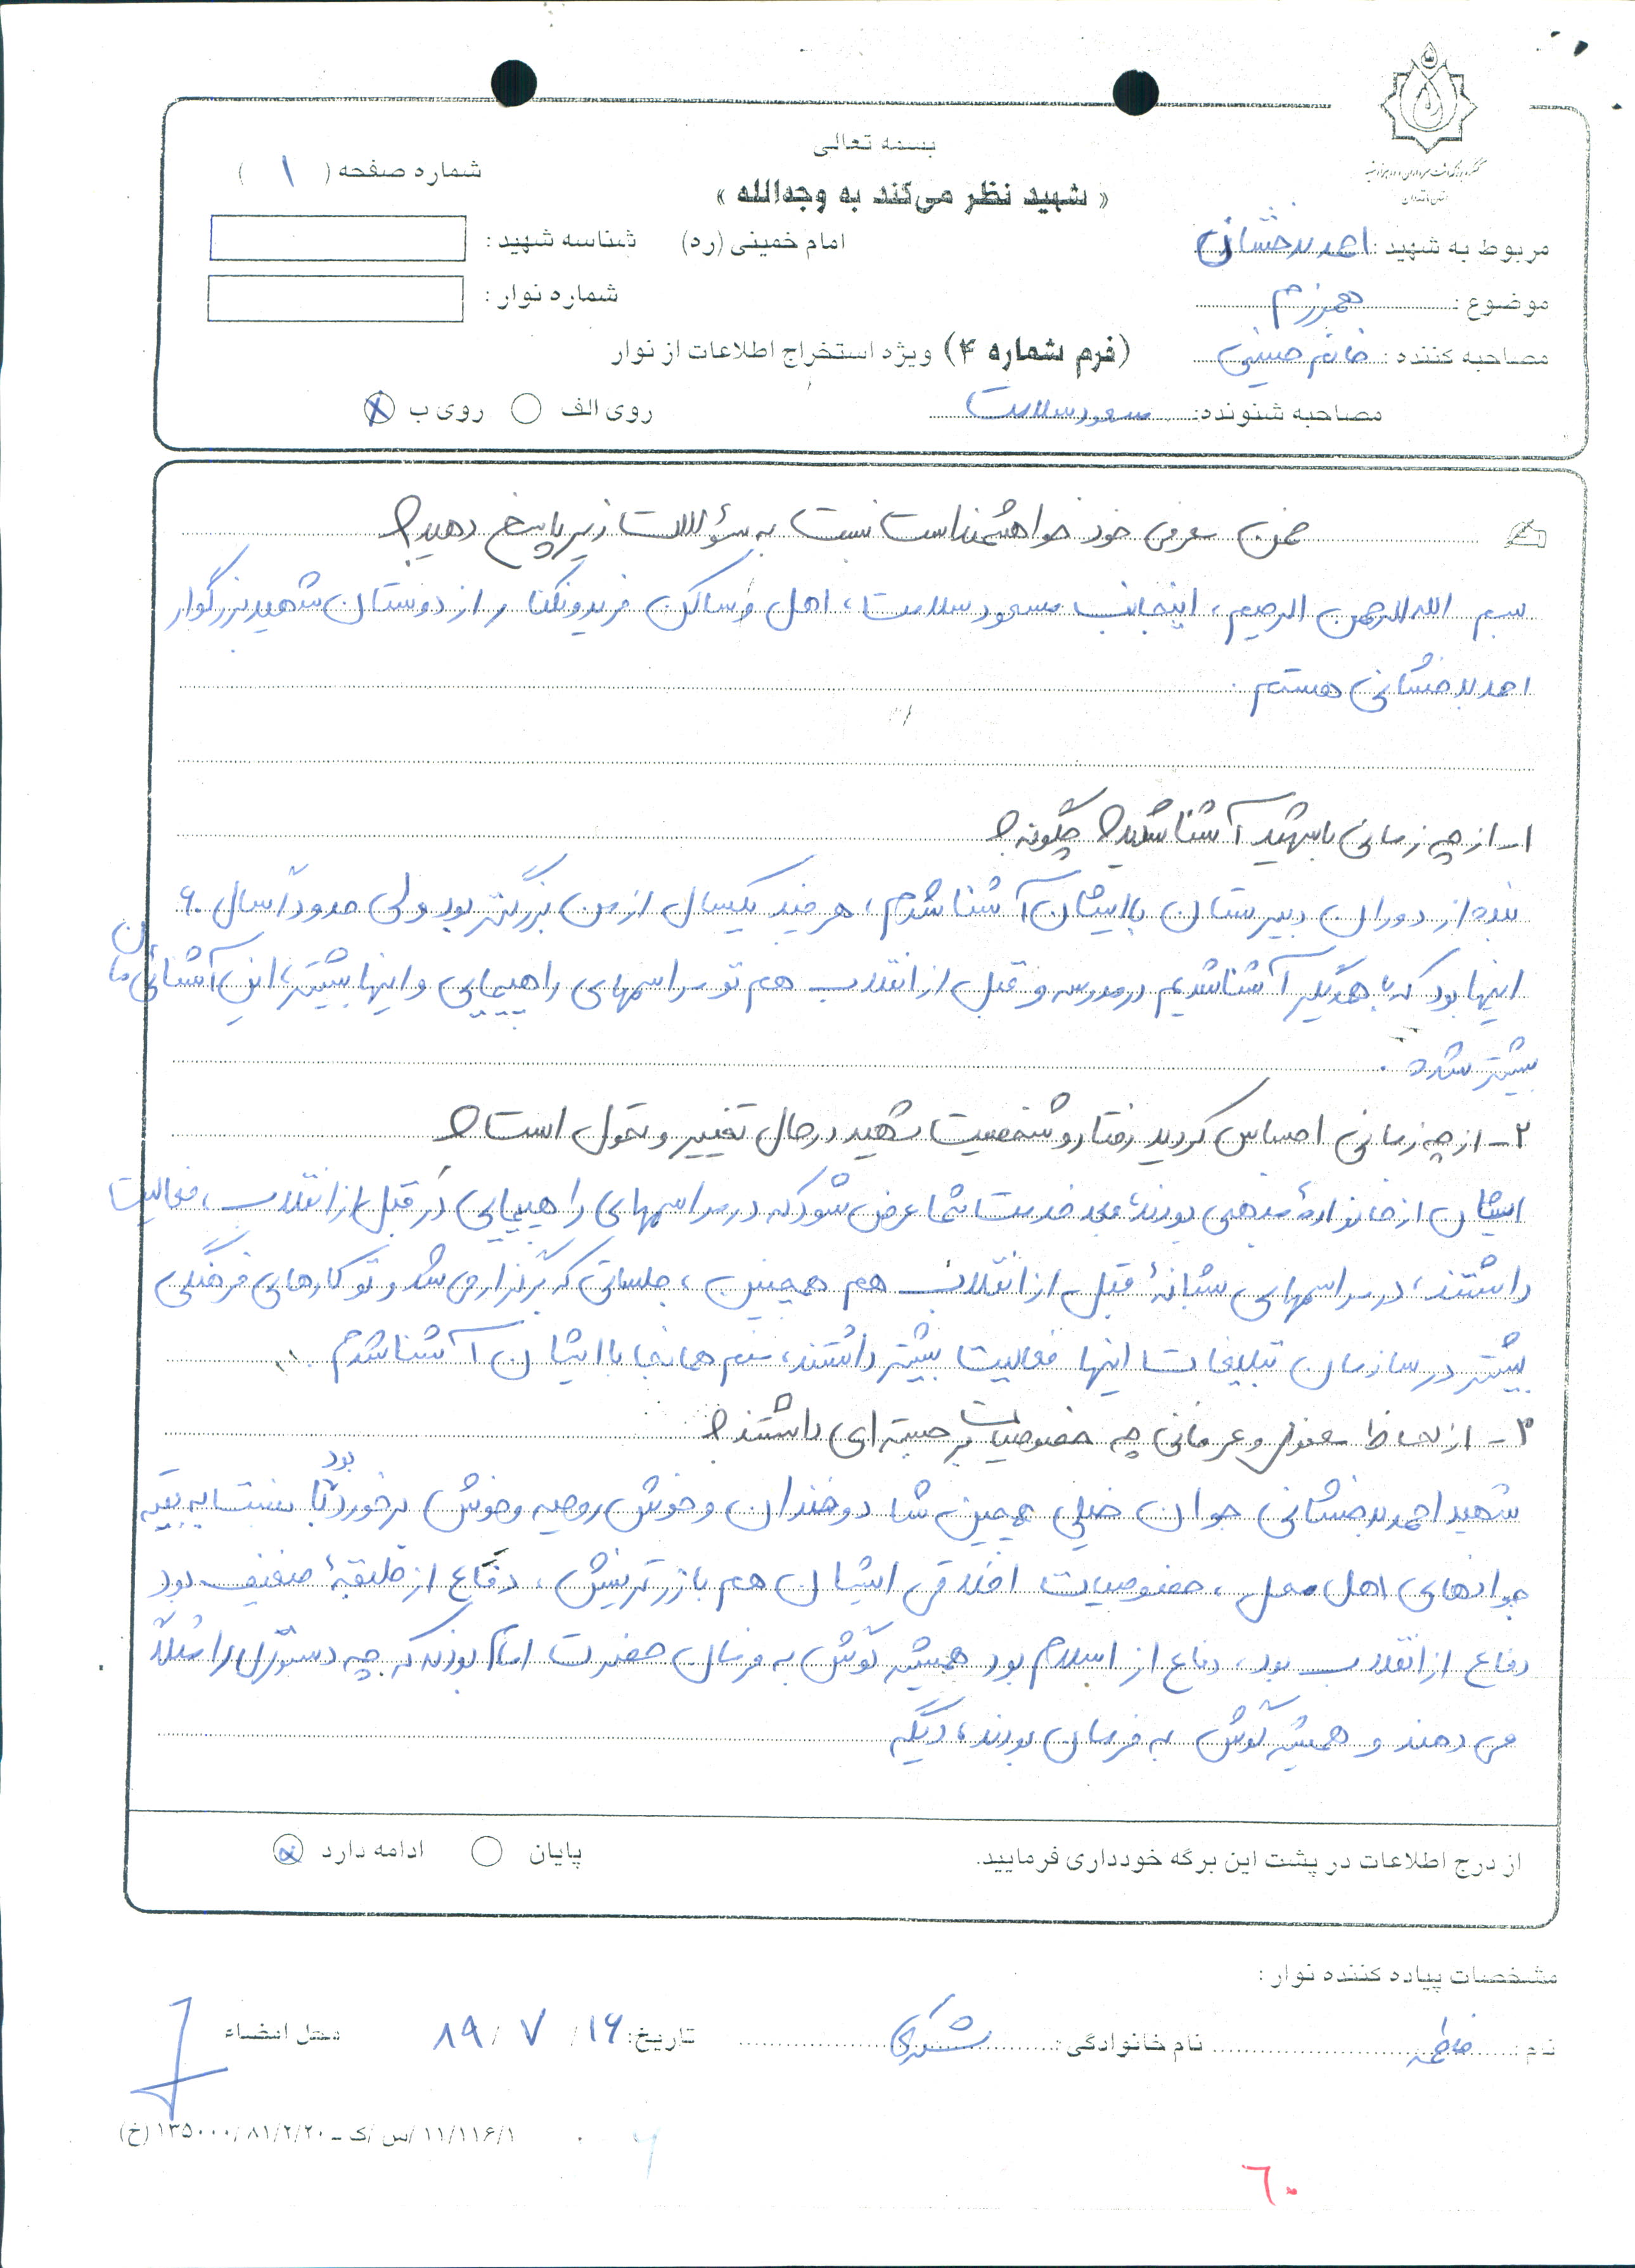 بسمه تعالی
« شهید نظر می‌کند به وجه‌الله »
شماره صفحه ( ۱ )
مربوط به شهید : احمد بدخشانی
امام خمینی (ره)
شناسه شهید :
موضوع : همرزم
شماره نوار :
مصاحبه کننده : خانم حسینی
(فرم شماره ۴) ویژه استخراج اطلاعات از نوار
مصاحبه شنونده: مسعود سلامت
روی الف روی ب
ضمن معرفی خود خواهشمند است نسبت به سؤالات زیر پاسخ دهید؟
بسم الله الرحمن الرحیم، اینجانب مسعود سلامت، اهل و ساکن فریدونکنار از دوستان شهید بزرگوار
احمد بدخشانی هستم.
۱- از چه زمانی با شهید آشنا شدید؟ چگونه؟
بنده از دوران دبیرستان با ایشان آشنا شدم، هر چند یکسال از من بزرگتر بود ولی حدوداً سال ۶۰
اینها بود که با همدیگر آشنا شدیم در مدرسه و قبل از انقلاب هم تو مراسمهای راهپیمایی و اینها بیشتر، این آشنائی ما
بیشتر شد.
۲- از چه زمانی احساس کردید رفتار و شخصیت شهید در حال تغییر و تحول است؟
ایشان از خانوادۀ مذهبی بودند، خدمت شما عرض شود که در مراسمهای راهپیمایی در قبل از انقلاب، فعالیت
داشتند، در مراسمهای شبانۀ قبل از انقلاب هم همچنین، جلساتی که برگزار می شد و تو کارهای فرهنگی
بیشتر در سازمان تبلیغات اینها فعالیت بیشتر داشتند، منم همانجا با ایشان آشنا شدم.
۳- از لحاظ معنوی و عرفانی چه خصوصیات برجسته ای داشتند؟
شهید احمد بدخشانی جوان خیلی همچین شاد و خندان و خوش روحیه و خوش برخورد بود نسبت به بقیه
جوانهای اهل محل، خصوصیات اخلاقی ایشان هم بارزترینش، دفاع از طبقۀ ضعیف بود
دفاع از انقلاب بود، دفاع از اسلام بود همیشه گوش به فرمان حضرت امام بودند که چه دستوری را مثلاً
می دهند و همیشه گوش به فرمان بودند، دیگه
از درج اطلاعات در پشت این برگه خودداری فرمایید.
پایان ادامه دارد
مشخصات پیاده کننده نوار :
نام : فاطمه نام خانوادگی : تاریخ: ۱۶ / ۷ / ۸۹ محل امضاء
۱۱/۱۱۶/۱ /س /ک ـ ۸۱/۲/۲۰ /۱۳۵۰۰۰ (خ)
٦٠